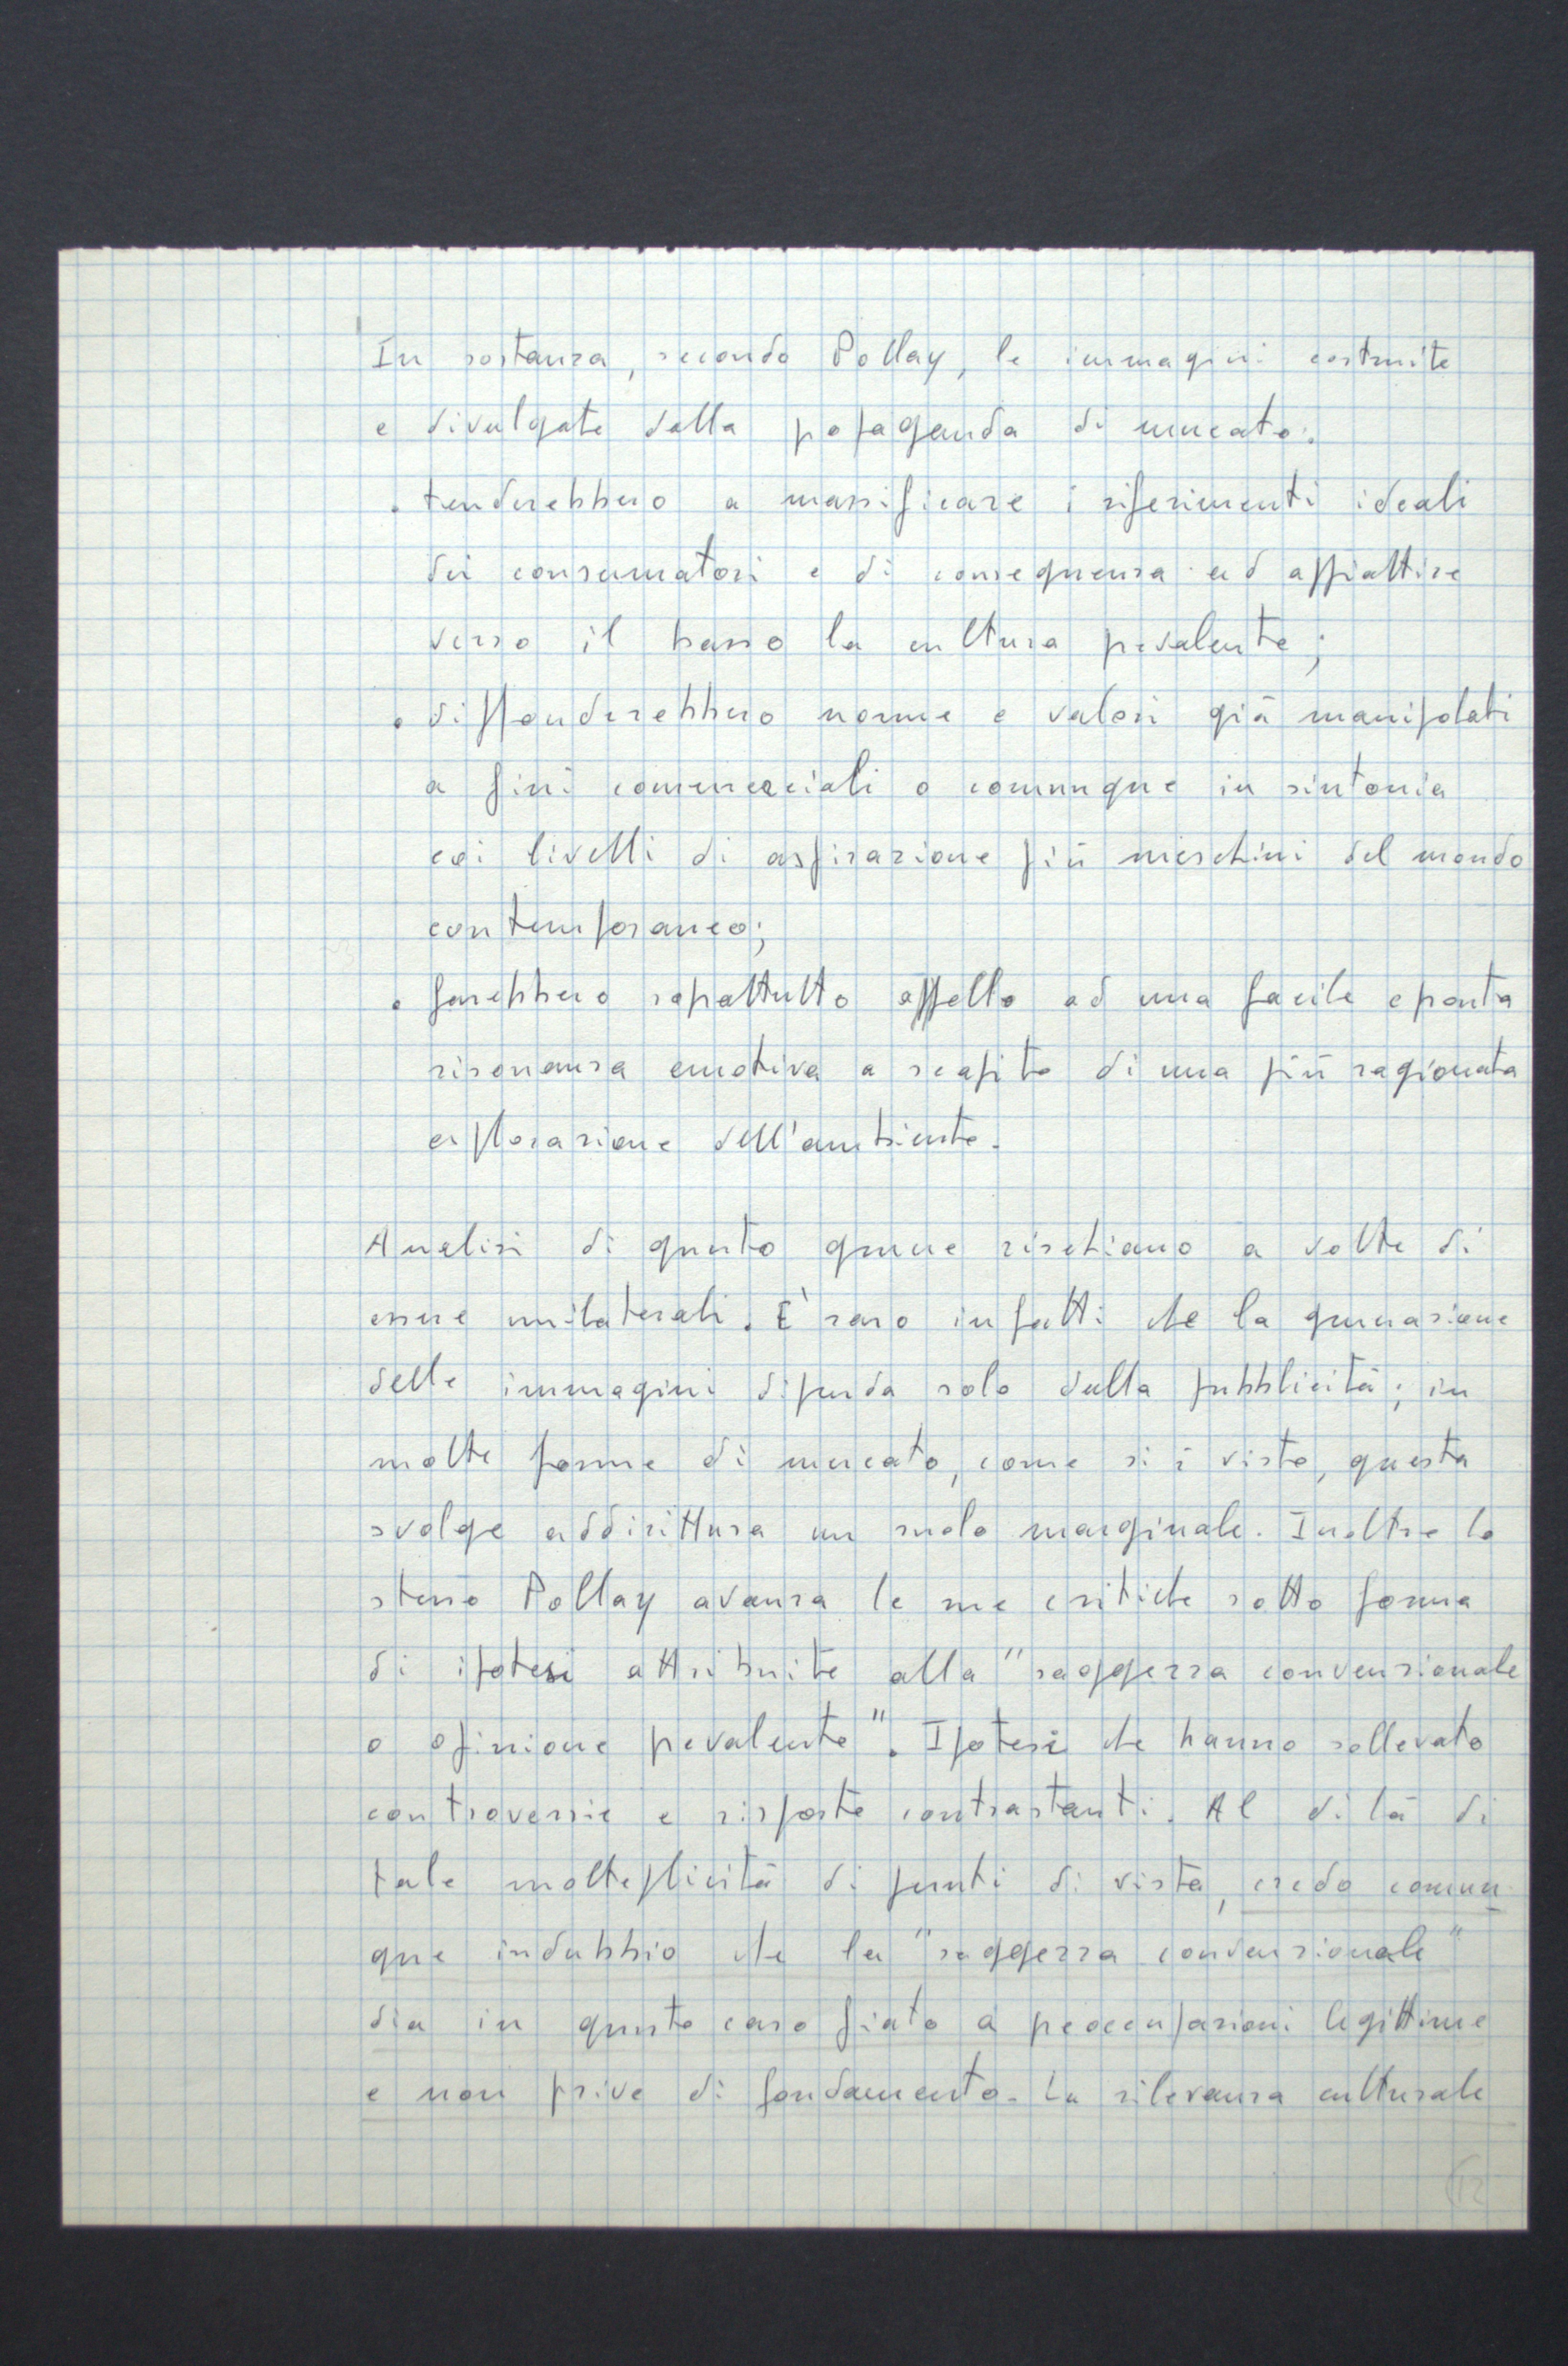 In sostanza, secondo Pollay, le immagini costruite
e divulgate dalla propaganda di mercato:
• tenderebbero a massificare i riferimenti ideali
dei consumatori e di conseguenza ad appiattire
verso il basso la cultura prevalente;
• diffonderebbero norme e valori già manipolati
a fini commerciali o comunque in sintonia
coi livelli di aspirazione più meschini del mondo
contemporaneo;
• farebbero soprattutto appello ad una facile e pronta
risonanza emotiva a scapito di una più ragionata
esplorazione dell'ambiente.
Analisi di questo genere rischiano a volte di
essere unilaterali. E' raro infatti che la generazione
delle immagini dipenda solo dalla pubblicità; in
molte forme di mercato, come si è visto, questa
svolge addirittura un ruolo marginale. Inoltre lo
stesso Pollay avanza le sue critiche sotto forma
di ipotesi attribuite alla "saggezza convenzionale
o opinione prevalente". Ipotesi che hanno sollevato
controversie e risposte contrastanti. Al di là di
tale molteplicità di punti di vista, credo comun-
que indubbio che la "saggezza convenzionale"
dia in questo caso fiato a preoccupazioni legittime
e non prive di fondamento. La rilevanza culturale
12